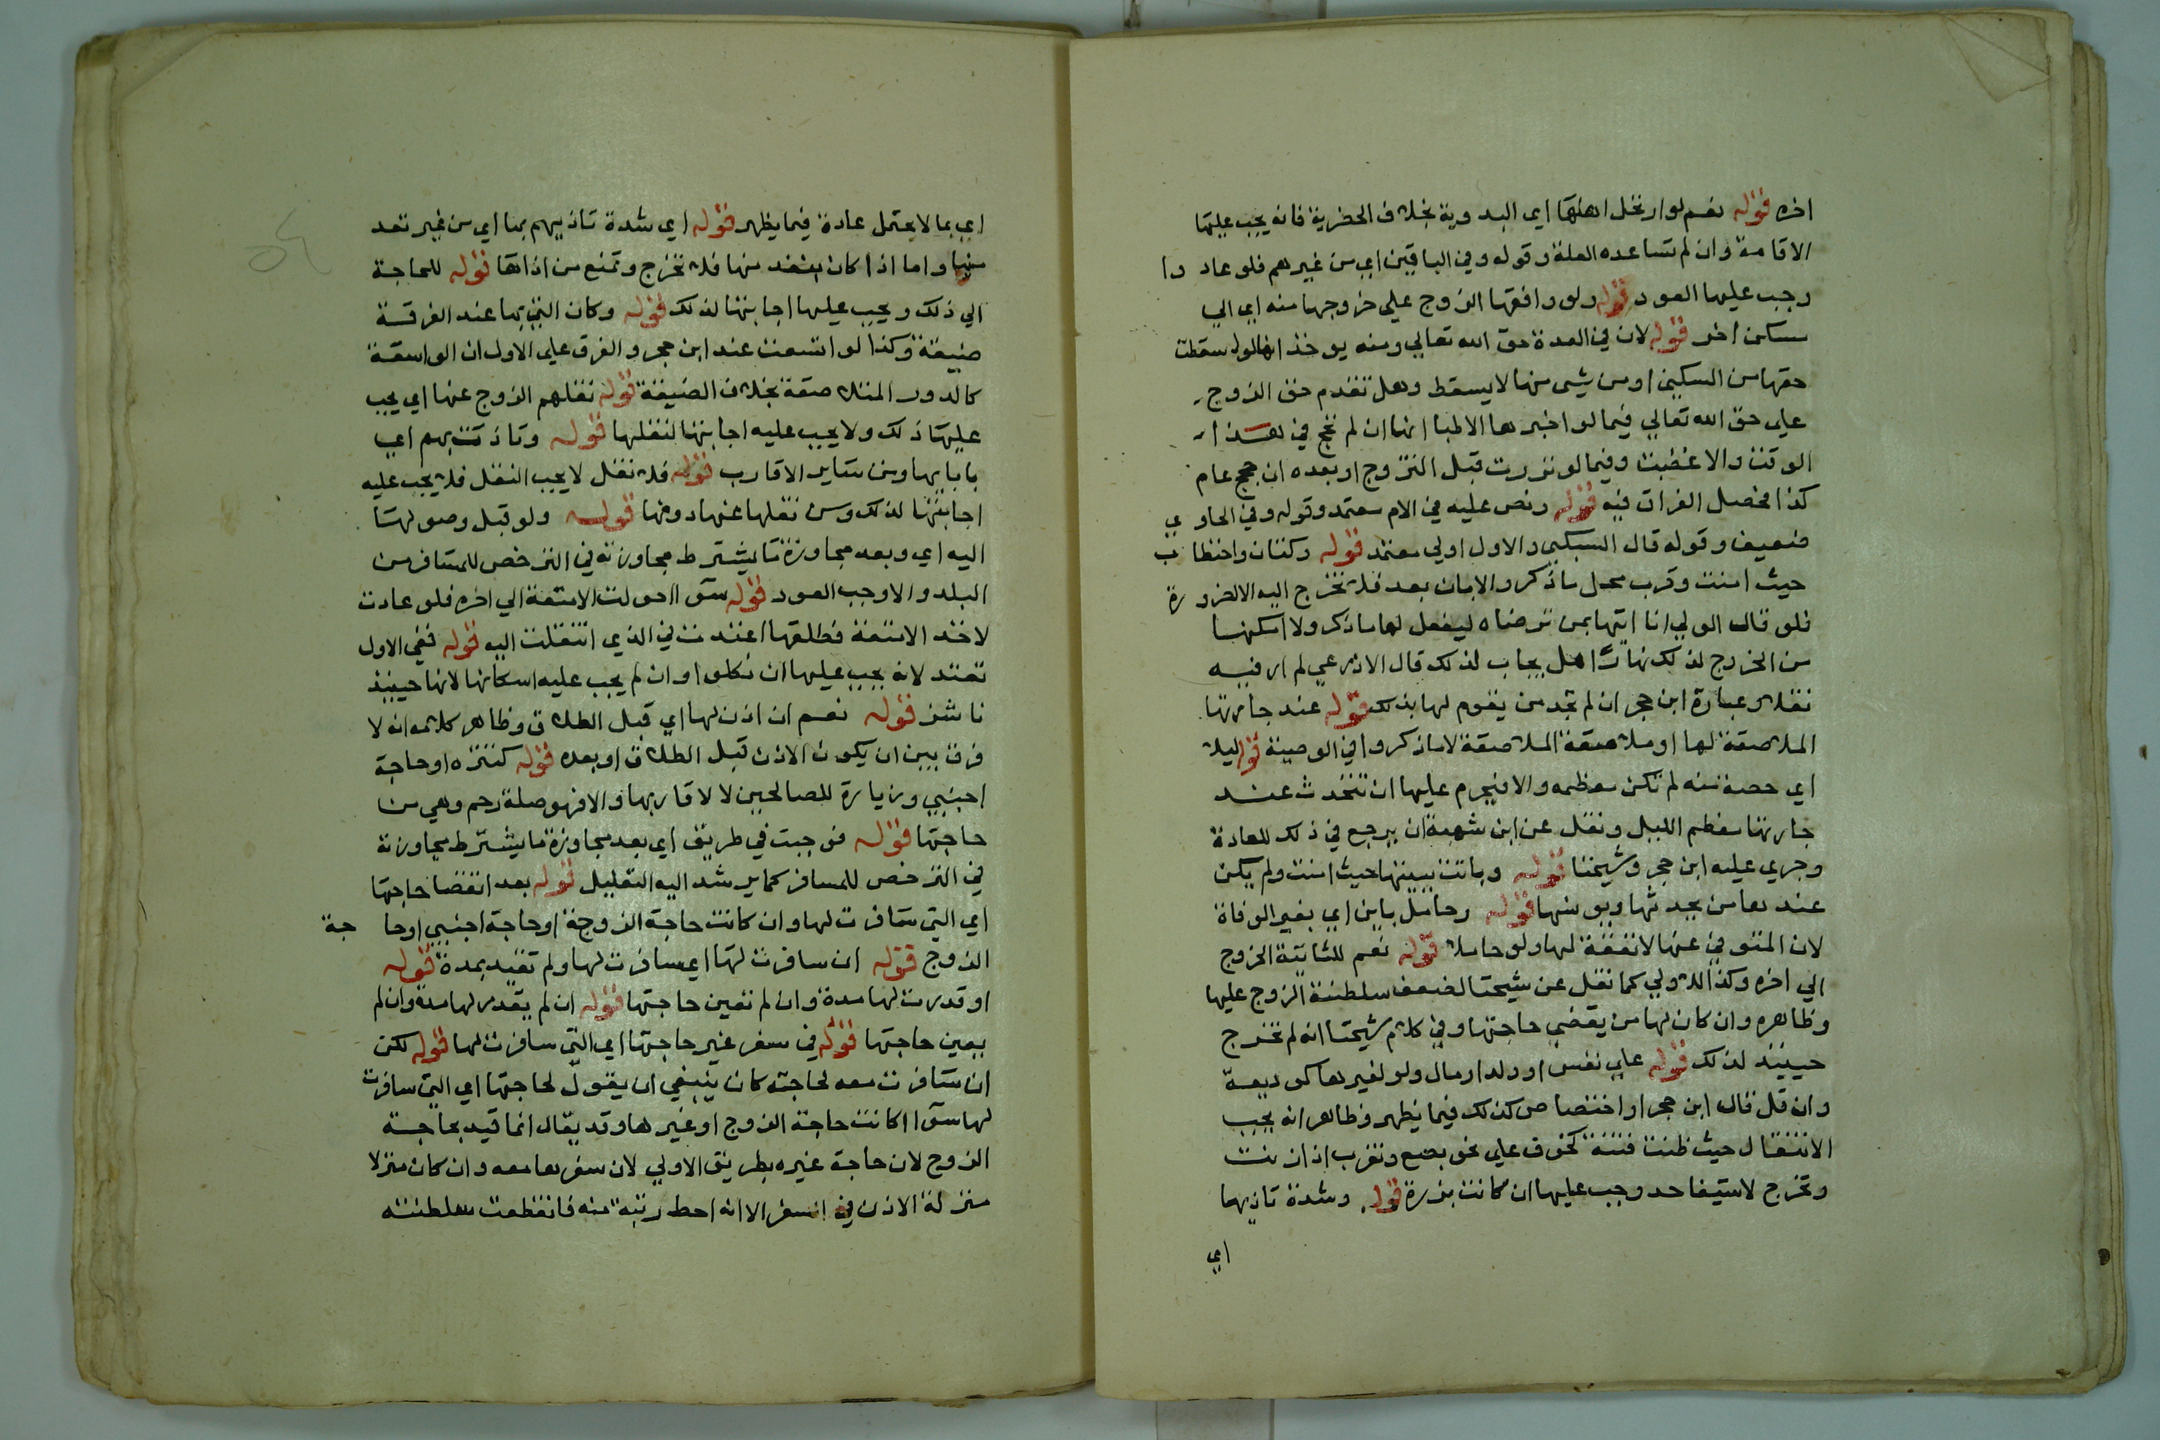 اخره قوله نعم لو ارتحل اهلها اي البدوية بخلاف الحضرية فانه يجب عليها
الاقامة وان لم تساعده العلة وقوله وفي الباقين اي من غيرهم فلو عادوا
وجب عليها العود قوله ولو وافقها الزوج علي خروجها منه اي الي
مسكن اخر قوله لان في العدة حق الله تعالي ومنه يوخذ انها لو اسقطت
حقها من السكني او من شي منها لا يسقط وهل تقدم حق الزوج
علي حق الله تعالي فيما لو اخبرها الاطبا انها ان لم تحج في هذا
الوقت والا عضبت وفيما لو نذرت قبل التزوج او بعده ان تحج عام
كذا فحصل الفراق فيه قوله ونص عليه في الام معتمد وقوله وفي الحاوي
ضعيف وقوله قال السبكي والاول اولي معتمد قوله وكتان واحتطاب
حيث امنت وقرب محل ما ذكر والا بان بعد فلا تخرج اليه الا لضرورة
فلو قال الولي انا اتيها بمن ترضاه ليفعل لها ما ذكر ولا امكنها
من الخروج لذلك نهارًا هل يجاب لذلك قال الاذرعي لم ار فيه
نقلا وعبارة ابن حجر ان لم تجد من يقوم لها بذلك قوله عند جارتها
الملاصقة لها او ملاصقة الملاصقة لا ما ذكروا في الوصية قوله ليلا
اي حصة منه لم تكن معظمه والا فيحرم عليها ان تتحدث عند
جارتها معظم الليل ونقل عن ابن شهبة ان يرجع في ذلك للعادة
وجري عليه ابن حجر وشيخنا قوله وباتت ببيتها حيث امنت ولم يكن
عندها من يحدثها ويونسها قوله وحامل باين اي بغير الوفاة
لان المتوفي عنها لا نفقة لها ولو حاملا قوله نعم للثانية الخروج
الي اخره وكذا الاولي كما نقل عن شيخنا لضعف سلطنة الزوج عليها
وظاهره وان كان لها من يقضي حاجتها وفي كلام شيخنا انه لم تخرج
حينيذ لذلك قوله علي نفس او ولد او مال ولو لغيرها كوديعة
وان قل قال ابن حجر او اختصاص كذلك فيما يظهر وظاهر انه يجب
الانتقال حيث ظنت فتنة كخوف علي نحو بضع وتغرب اذا زنت
وتخرج لاستيفا حد وجب عليها ان كانت برزة قوله وشدة تاذيها
اي
اي بما لا يحتمل عادة فيما يظهر قوله اي شدة تاذيهم بها اي من غير تعد
منها واما اذا كان التعد منها فلا تخرج وتمنع من اذاها قوله للحاجة
الي ذلك ويجب عليها اجابتها لذلك قوله وكان التي بها عند الفرقة
ضيقة وكذا لو اتسعت عند ابن حجر والفرق علي الاول ان الواسعة
كالدور المتلاصقة بخلاف الضيقة قوله نقلهم الزوج عنها اي يجب
عليها ذلك ولا يجب عليه اجابتها لنقلها قوله وتاذت بهم اي
بابايها ومن ساير الاقارب قوله فلا نقل لا يجب النقل فلا يجب عليه
اجابتها لذلك ومن نقلها عنهادونها قوله ولو قبل وصولها
اليه اي وبعد مجاوزة ما يشترط مجاوزته في الترخص للمسافر من
البلد والا وجب العود قوله سوا احولت الامتعة الي اخره فلو عادت
لاخذ الامتعة فطلقها اعتدت في الذي انتقلت اليه قوله ففي الاول
تعتد لانه يجب عليها ان تكلوا وان لم يجب عليه اسكانها لانها حينيذ
ناشز قوله نعم ان اذن لها اي قبل الطلاق وظاهر كلامه انه لا
فرق بين ان يكون الاذن قبل الطلاق او بعده قوله كنزه او حاجة
اجنبي وزيارة للصالحين لا لاقاربها والا فهو صلة رحم وهي من
حاجتها قوله فوجبت في طريق اي بعد مجاوزة ما يشترط مجاوزته
في الترخص للمسافر كما يرشد اليه التعليل قوله بعد انقضا حاجتها
اي التي سافرت لها وان كانت حاجة الزوجة او حاجة اجنبي او حاجة
الزوج قوله ان سافرت لها اي سافرت لها ولم تقيد بمدة قوله
او قدرت لها مدة وان لم تعين حاجتها قوله ان لم يقدر لها مدة وان لم
يعين حاجتها قوله في سفر غير حاجتها اي التي سافرت لها قوله لكن
ان سافرت معه لحاجته كان ينبغي ان يقول لحاجتها اي التي سافرت
لها سوا اكانت حاجة الزوج او غيرها وقد يقال انما قيد بحاجة
الزوج لان حاجة غيره بطريق الاولي لان سفرها معه وان كان منزلا
منزلة الاذن في السفر الا انه احط رتبة منه فانقطعت سلطنته